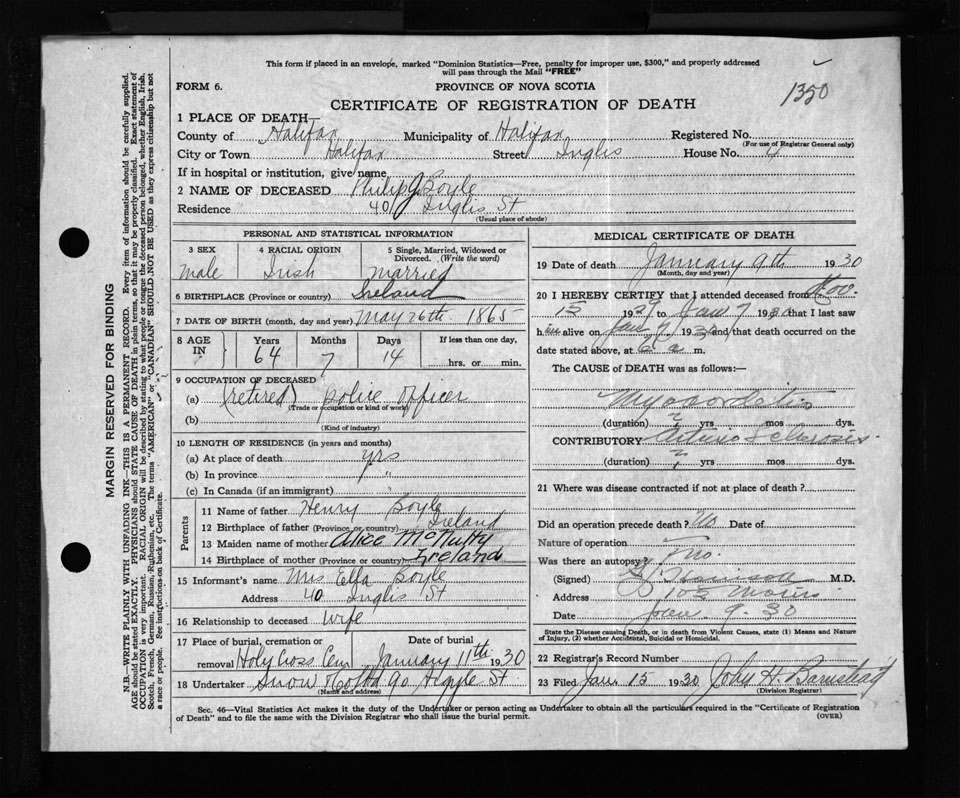 This form if placed in an envelope, marked "Dominion Statistics—Free, penalty for improper use, $300," and properly addressed
will pass through the Mail "FREE"
1350
FORM 6. PROVINCE OF NOVA SCOTIA
CERTIFICATE OF REGISTRATION OF DEATH
1 PLACE OF DEATH
County of Halifax Municipality of Halifax Registered No.
(For use of Registrar General only)
City or Town Halifax Street Inglis House No.
If in hospital or institution, give name
2 NAME OF DECEASED Philip J Boyle
Residence 40 Inglis St
(Usual place of abode)
PERSONAL AND STATISTICAL INFORMATION
3 SEX 4 RACIAL ORIGIN 5 Single, Married, Widowed or Divorced. (Write the word)
Male Irish Married
6 BIRTHPLACE (Province or country) Ireland
7 DATE OF BIRTH (month, day and year) May 26th 1865
8 AGE IN Years Months Days If less than one day,
64 7 14 hrs. or min.
9 OCCUPATION OF DECEASED
(a) (retired) police officer
(Trade or occupation or kind of work)
(b)
(Kind of industry)
10 LENGTH OF RESIDENCE (in years and months)
(a) At place of death yrs
(b) In province "
(c) In Canada (if an immigrant) "
Parents
11 Name of father Henry Boyle
12 Birthplace of father (Province or country) Ireland
13 Maiden name of mother Alice McNulty
14 Birthplace of mother (Province or country) Ireland
15 Informant's name Mrs Ella Boyle
Address 40 Inglis St
16 Relationship to deceased wife
17 Place of burial, cremation or removal Holy Cross Cem Date of burial January 11th 1930
18 Undertaker Snow & Co Ltd 90 Argyle St
(Name and address)
MEDICAL CERTIFICATE OF DEATH
19 Date of death January 9th 1930
(Month, day and year)
20 I HEREBY CERTIFY that I attended deceased from Nov.
15 1929 to Jan 7 1930 that I last saw
him alive on Jan 7 1930 and that death occurred on
date stated above, at 6 a m.
The CAUSE of DEATH was as follows:—
Myocarditis
(duration) ? yrs mos dys.
CONTRIBUTORY Arterio Sclerosis
(duration) ? yrs. mos. dys.
21 Where was disease contracted if not at place of death?
Did an operation precede death? No Date of
Nature of operation
Was there an autopsy? no.
(Signed) M.D.
Address 103 Morris
Date Jan. 9 - 30
State the Disease causing Death, or in death from Violent Causes, state (1) Means and Nature
of Injury, (2) whether Accidental, Suicidal or Homicidal.
22 Registrar's Record Number
23 Filed Jan 15 1930 John H. Barnstead
(Division Registrar)
Sec. 46—Vital Statistics Act makes it the duty of the Undertaker or person acting as Undertaker to obtain all the particulars required in the "Certificate of Registration
of Death" and to file the same with the Division Registrar who shall issue the burial permit. (OVER)
MARGIN RESERVED FOR BINDING
N.B.—WRITE PLAINLY WITH UNFADING INK—THIS IS A PERMANENT RECORD. Every item of information should be carefully supplied.
AGE should be stated EXACTLY. PHYSICIANS should STATE CAUSE OF DEATH in plain terms, so that it may be properly classified. Exact statement of
OCCUPATION is very important. RACIAL ORIGIN will be described by stating to what people or tongue the deceased person belonged, whether English, Irish,
Scotch, French, German, Russian, Ruthenian, etc. The terms "AMERICAN" or "CANADIAN" SHOULD NOT BE USED as they express citizenship but not
a race or people. See instructions on back of Certificate.